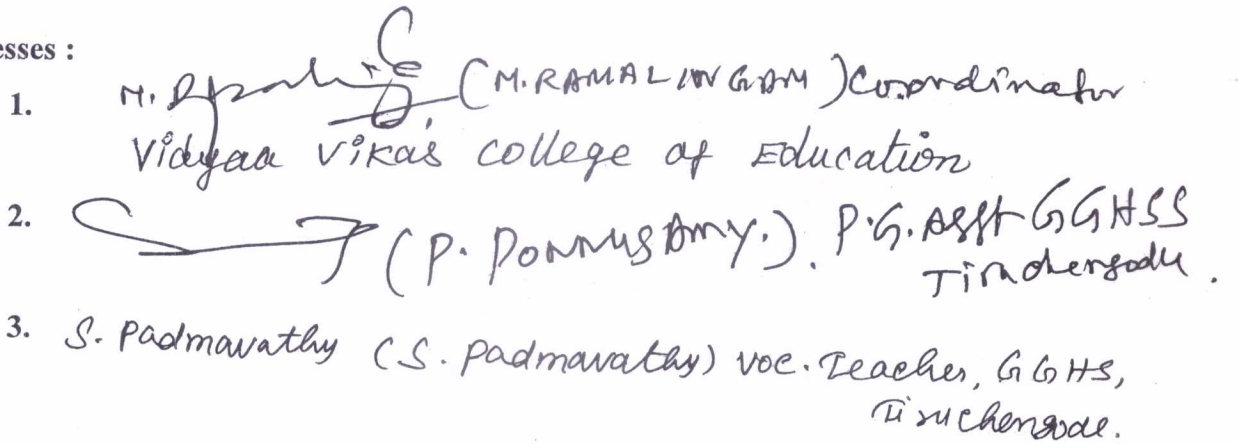 esses :
1. (M. RAMALINGAM) Coordinator
Vidyaa Vikas College of Education
2. (P. PONNUSAMY.). P.G. Asst GGHSS
Tiruchengodu.
3. S. Padmavathy (S. Padmavathy) Voc. Teacher, GGHS,
Tiruchengode.